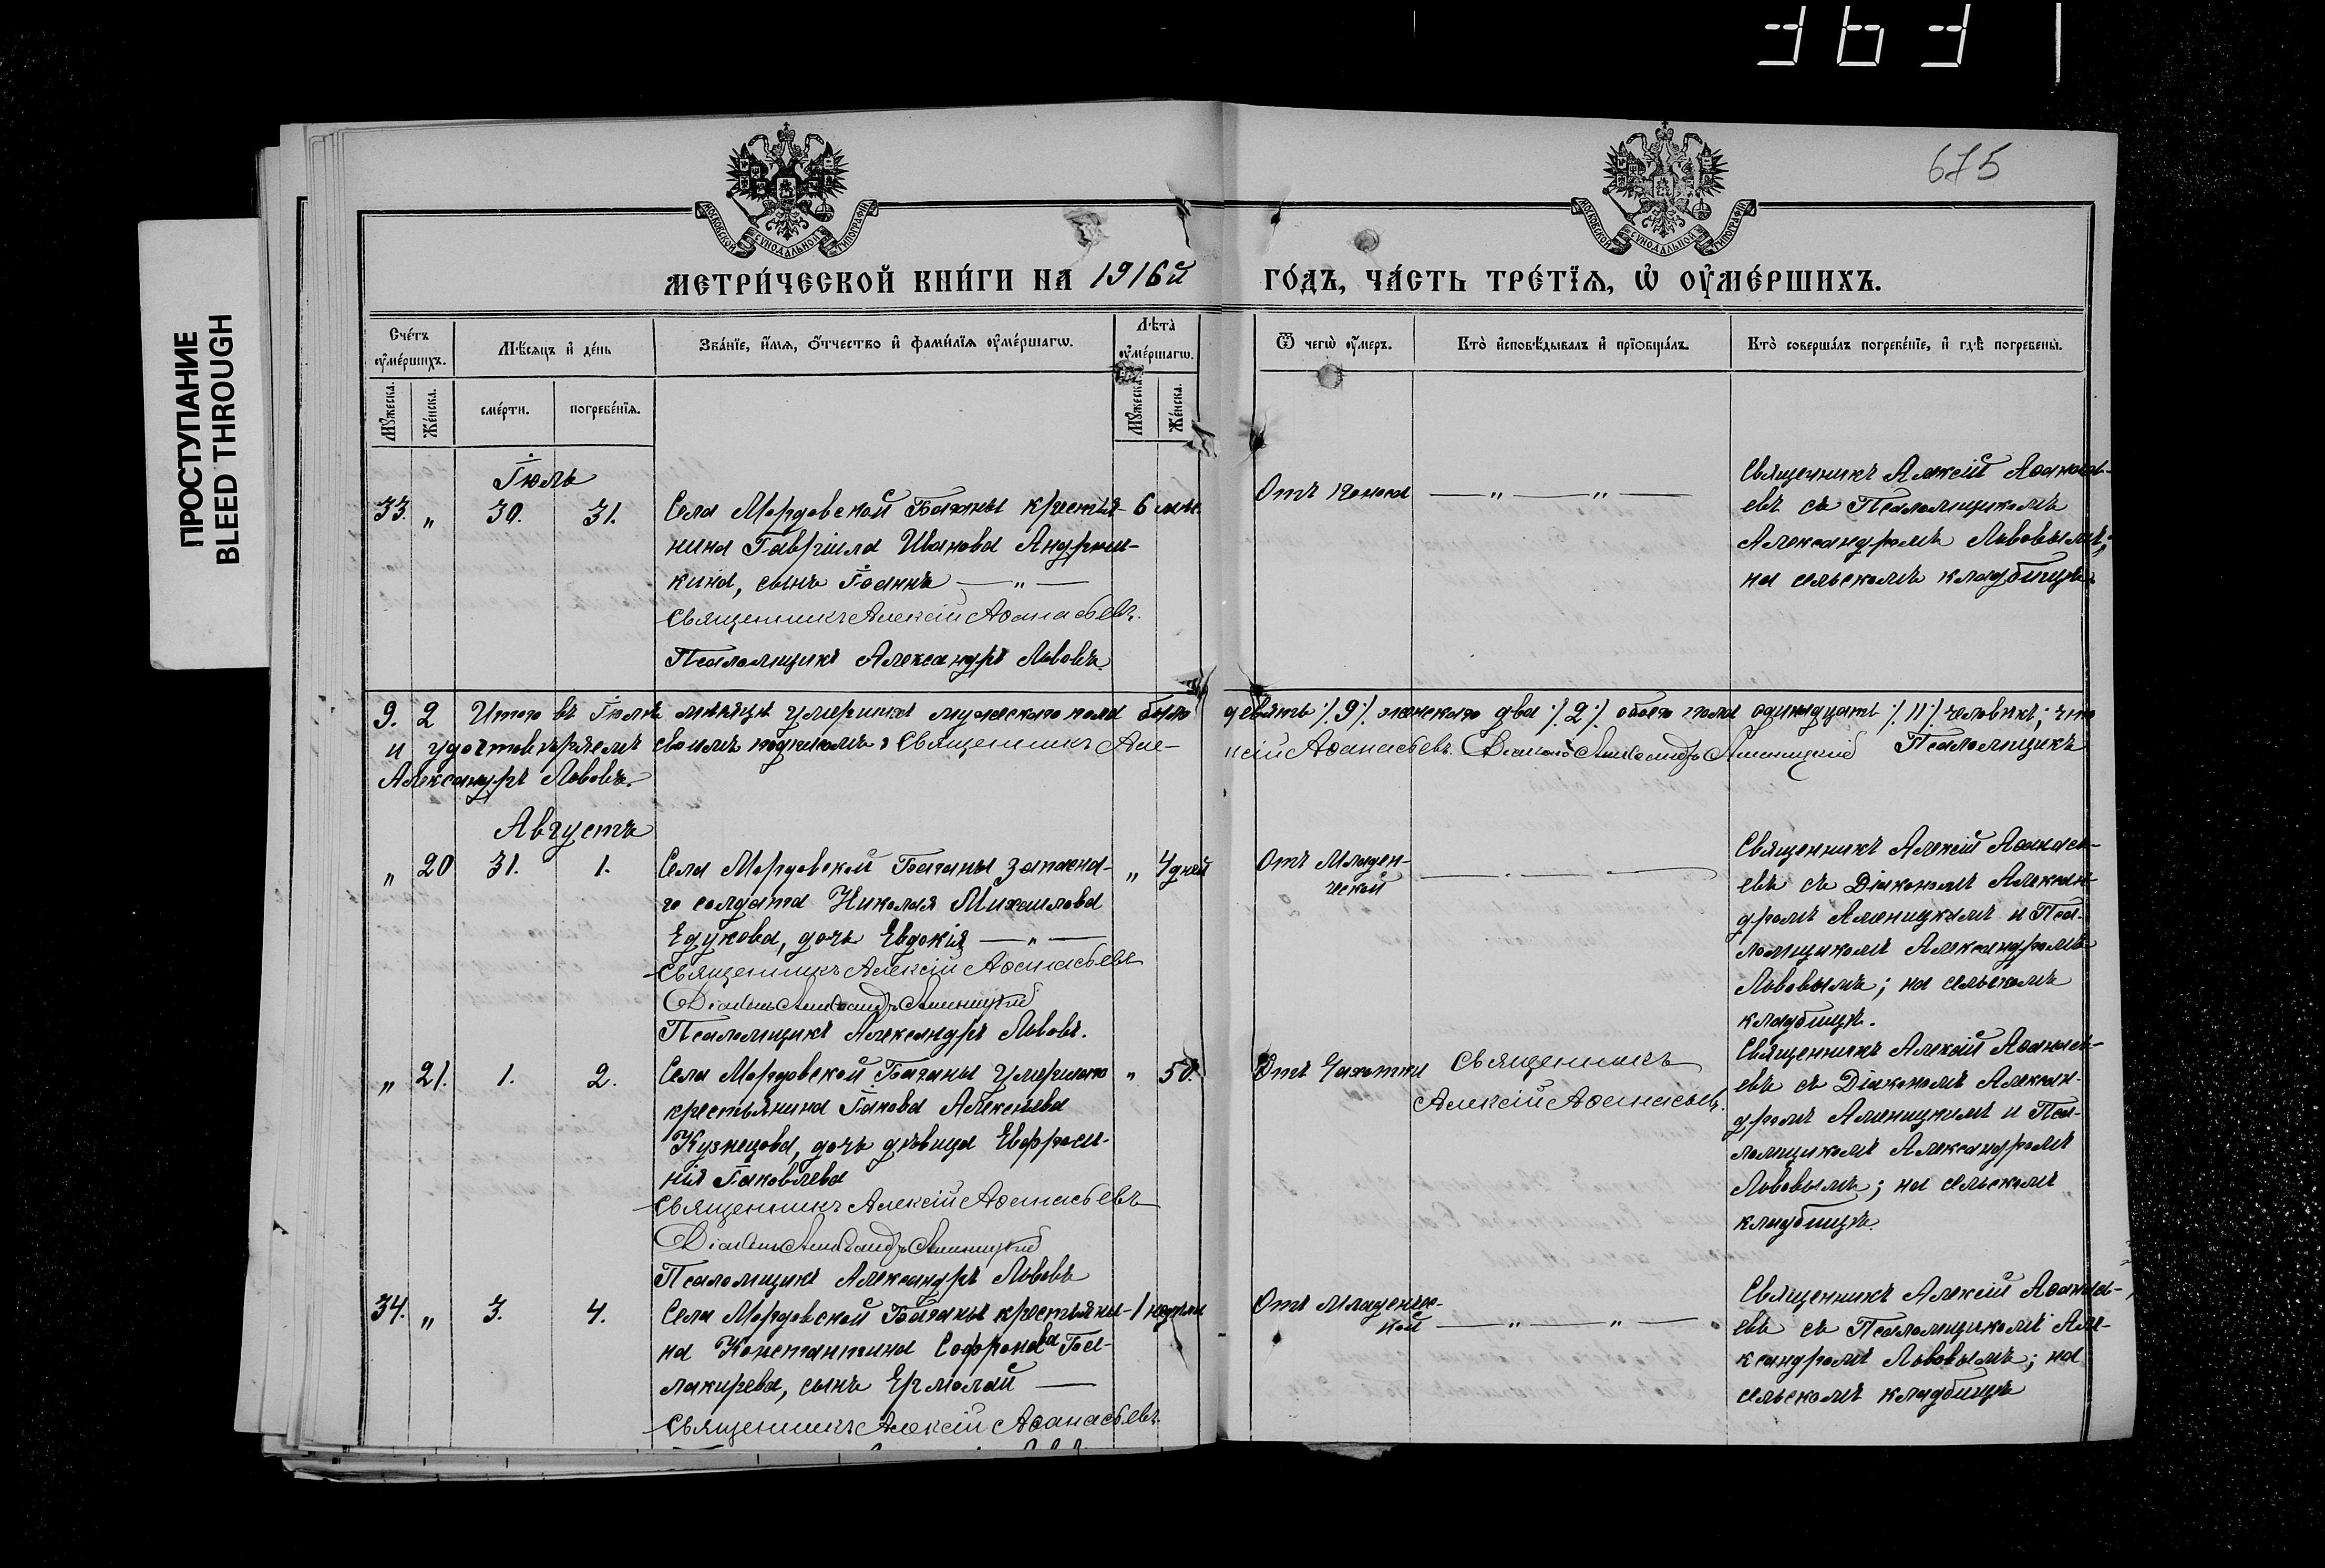 363
ПРОСТУПАНИЕ
BLEED THROUGH
675
МОСКОВСКОЙ СУНОДАЛЬНОЙ ТИПОГРАФІИ
МОСКОВСКОЙ СУНОДАЛЬНОЙ ТИПОГРАФІИ
МЕТРИ́ЧЕСКОЙ КНИ́ГИ НА 1916й ГО́ДЪ, ЧА́СТЬ ТРЕ́ТЇѦ, Ѡ҆ ОУ҆МЕ́РШИХЪ.
Сче́тъ оу҆ме́ршихъ.
Мꙋжеска.
Же́нска.
Мѣ́сѧцъ и҆ де́нь
сме́рти.
погребе́нїѧ.
Зва́нїе, и҆́мѧ, ѻ҆́тчество и҆ фами́лїѧ оу҆ме́ршагѡ.
Лѣта̀ оу҆ме́ршагѡ.
Мꙋжеска.
Же́нска.
Ѿ чегѡ̀ оу҆́меръ.
Кто̀ и҆сповѣ́дывалъ и҆ прїѡбща́лъ.
Кто̀ соверша́лъ погребе́нїе, и҆ гдѣ̀ погребены̀.
Іюль
33. " 30. 31.
Села Мордовской Баганы крестья-
нина Гавріила Иванова Андрюш-
кина, сынъ Іоаннъ — " —
Священникъ Алексій Аѳанасьевъ.
Псаломщикъ Александръ Львовъ.
6 мѣс.
Отъ поноса — " — " —
Священникъ Алексій Аѳанась-
евъ съ Псаломщикомъ
Александромъ Львовымъ;
на сельскомъ кладбищѣ.
9. 2 Итого въ Іюлѣ мѣсяцѣ умершихъ мужескаго пола было девять ./.9./. женскаго два ./.2./. обоего пола одинадцать ./.11./. человѣкъ; что
и удостовѣряемъ своимъ подписомъ: Священникъ Алексій Аѳанасьевъ. Діаконъ Александръ Псаломщикъ
Александръ Львовъ.
Августъ
" 20 31. 1.
Села Мордовской Баганы запасна-
го солдата Николая Михаилова
Едукова, дочь Евдокія — " —
Священникъ Алексій Аѳанасьевъ
Діаконъ Александръ
Псаломщикъ Александръ Львовъ.
" 4 дней
Отъ младен-
ческой
Священникъ Алексій Аѳанась-
евъ съ Діакономъ Алексан-
дромъ и Пса-
ломщикомъ Александромъ
Львовымъ; на сельскомъ
кладбищѣ.
" 21. 1. 2.
Села Мордовской Баганы умершаго
крестьянина Іакова Алексѣева
Кузнецова, дочь дѣвица Евфроси-
нія Іаковлева
Священникъ Алексій Аѳанасьевъ
Діаконъ Александръ
Псаломщикъ Александръ Львовъ
" 50.
Отъ Чахотки
Священникъ
Алексій Аѳанасьевъ.
Священникъ Алексій Аѳанась-
евъ съ Діакономъ Алексан-
дромъ и Пса-
ломщикомъ Александромъ
Львовымъ; на сельскомъ
кладбищѣ.
34. " 3. 4.
Села Мордовской Баганы крестьяни-
на Константина Софронова Ба-
лакирева, сынъ Ермолай —
Священникъ Алексій Аѳанасьевъ.
1 недѣли
Отъ младенчес-
кой — " — " —
Священникъ Алексій Аѳанась-
евъ съ Псаломщикомъ Але-
ксандромъ Львовымъ; на
сельскомъ кладбищѣ